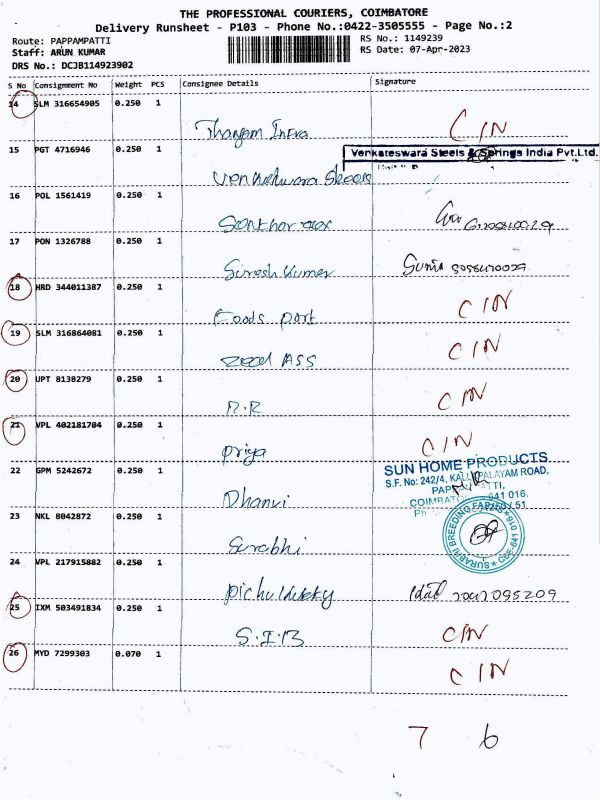 THE PROFESSIONAL COURIERS, COIMBATORE
Delivery Runsheet - P103 - Phone No.:0422-3505555 - Page No.:2
Route: PAPPAMPATTI RS No.: 1149239
Staff: ARUN KUMAR RS Date: 07-Apr-2023
DRS No.: DCJB114923902
S No Consignment No Weight PCS Consignee Details Signature
14 SLM 316654905 0.250 1
CIN
15 PGT 4716946 0.250 1
Venkateswara Steels & Springs India Pvt.Ltd.
16 POL 1561419 0.250 1
17 PON 1326788 0.250 1
Suresh Kumar
18 HRD 344011387 0.250 1
Foods port CIN
19 SLM 316864081 0.250 1
CIN
20 UPT 8138279 0.250 1
CIN
21 VPL 402181704 0.250 1
Priya CIN
22 GPM 5242672 0.250 1
SUN HOME PRODUCTS
S.F. No: 242/4, ROAD,
COIMBATO 641 016.
Dhanvi
23 NKL 8042872 0.250 1
Surabhi
SURABHI BREEDING FARMS CBE-641 016
24 VPL 217915882 0.250 1
25 IXM 503491834 0.250 1
S.I.B CIN
26 MYD 7299303 0.070 1
CIN
7 6